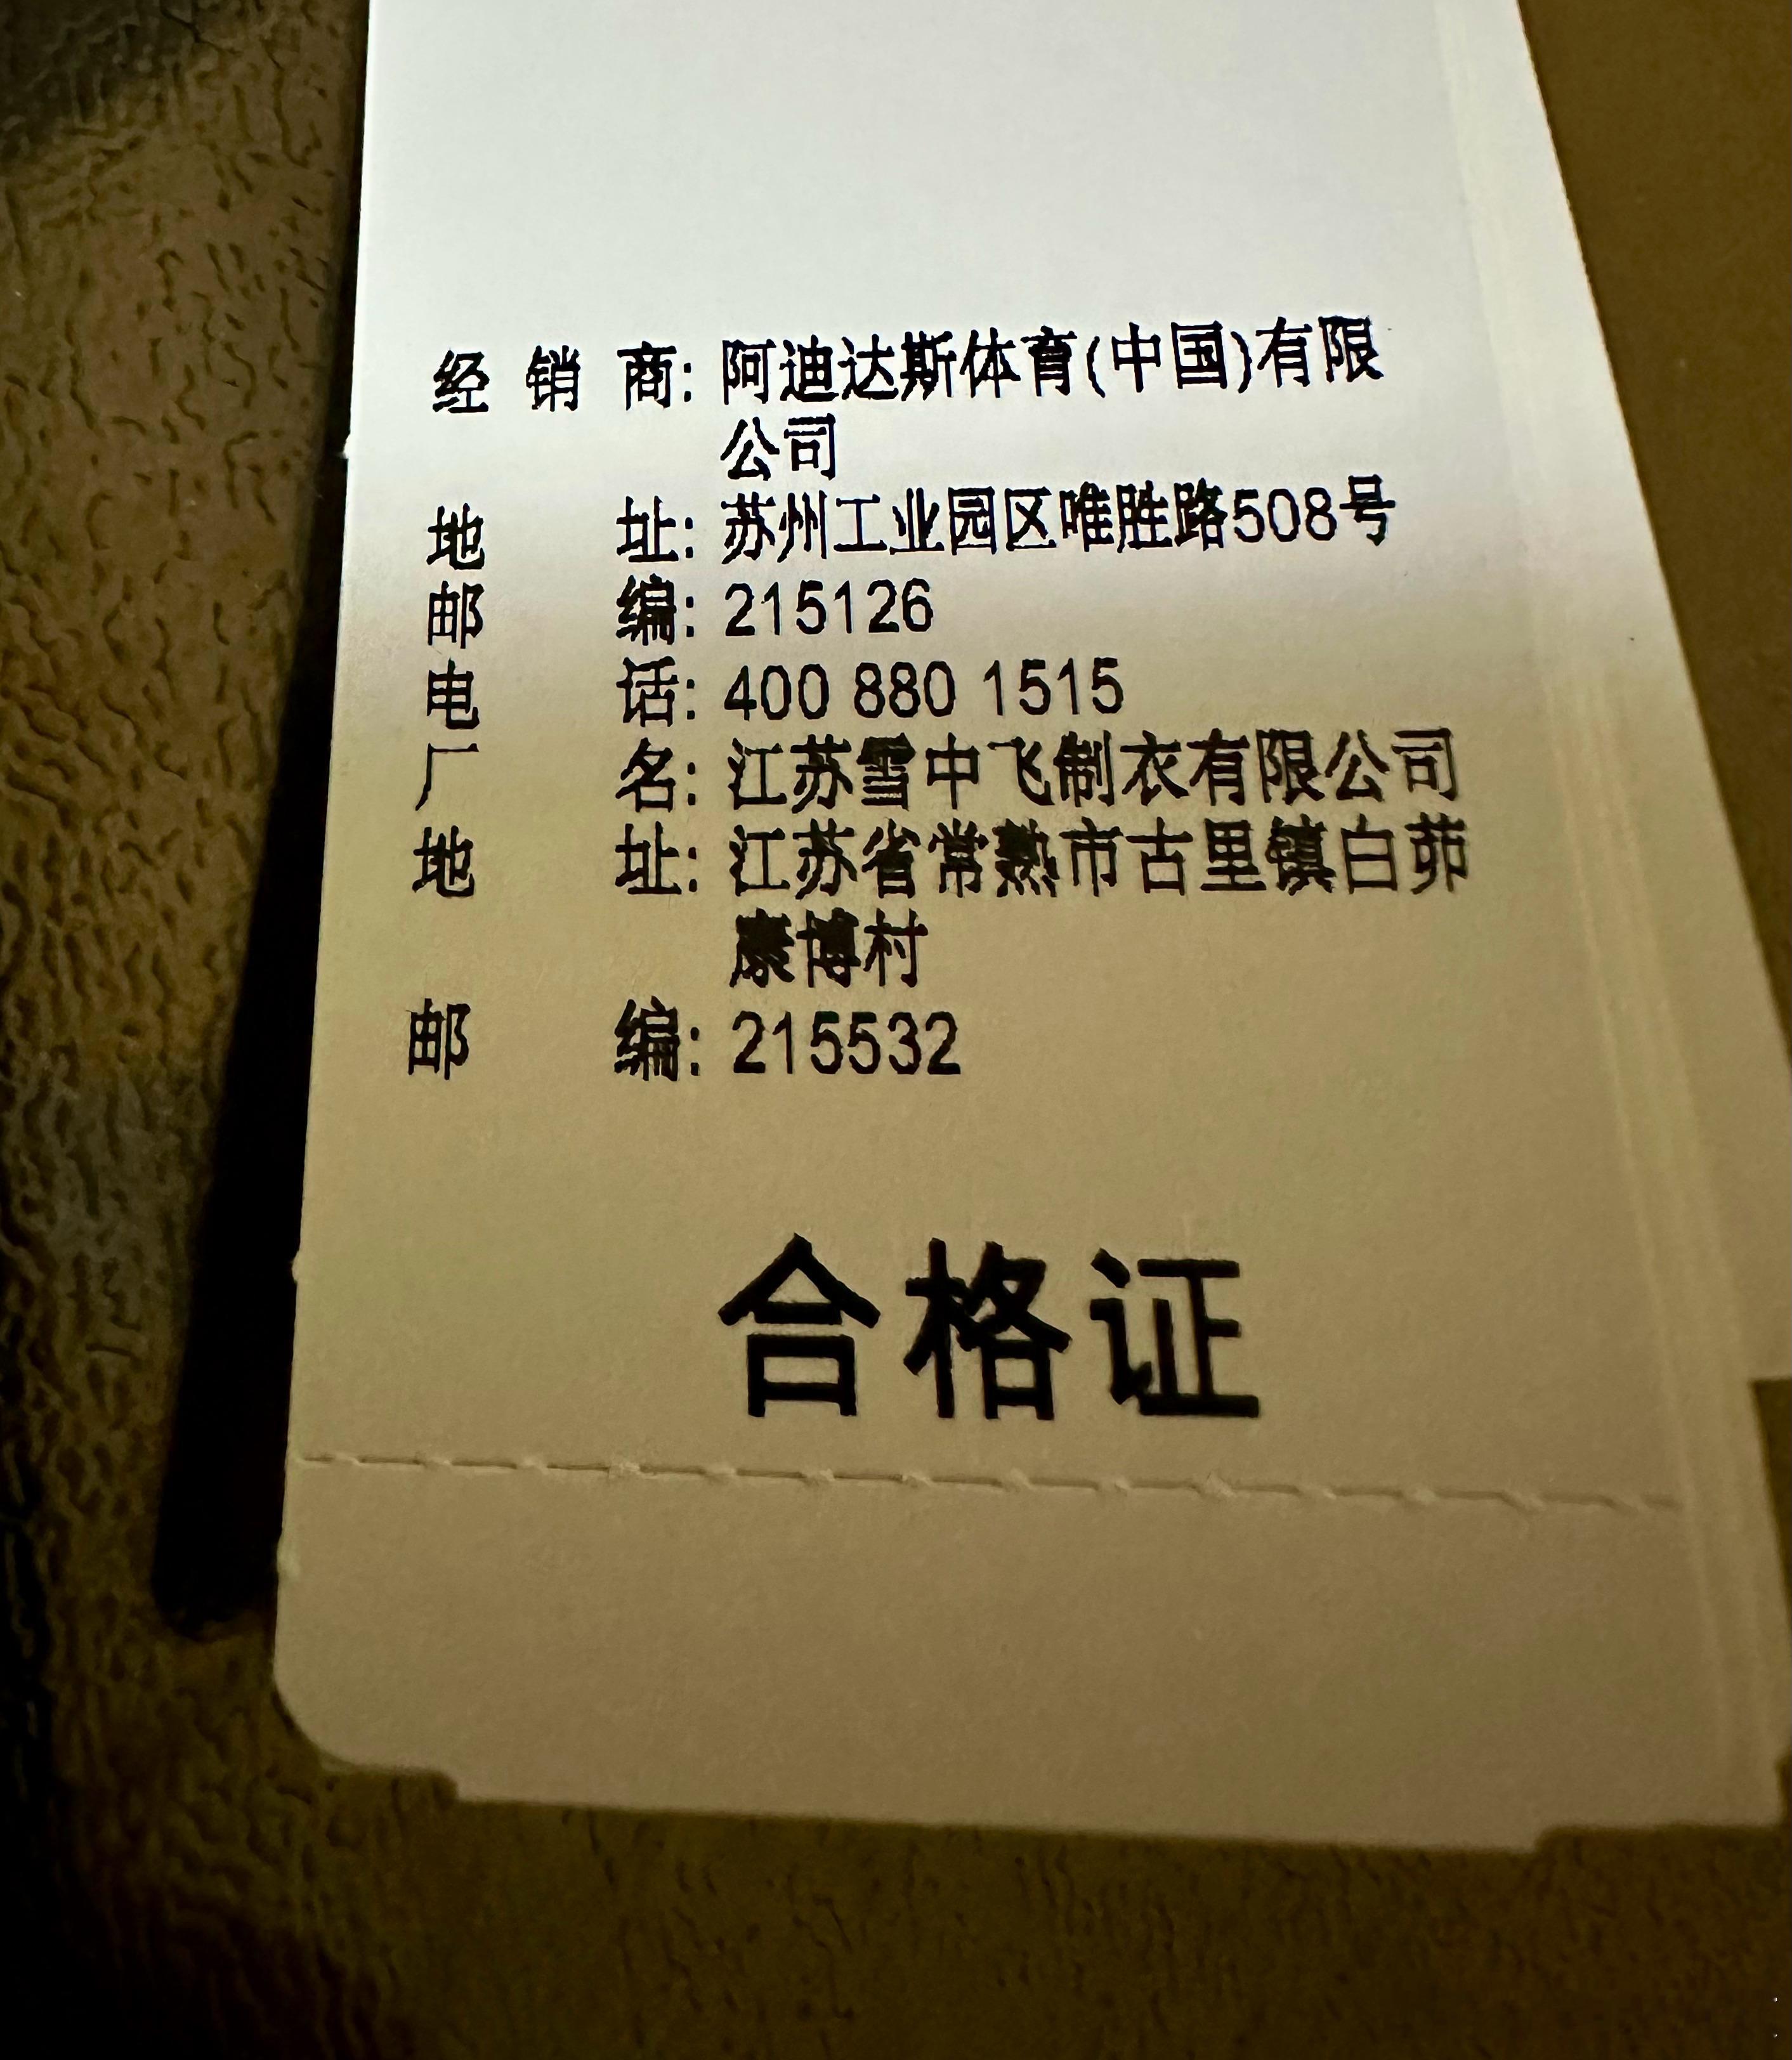 经销商: 阿迪达斯体育(中国)有限
公司
地址: 苏州工业园区唯胜路508号
邮编: 215126
电话: 400 880 1515
厂名: 江苏雪中飞制衣有限公司
地址: 江苏省常熟市古里镇白茆
康博村
邮编: 215532
合格证